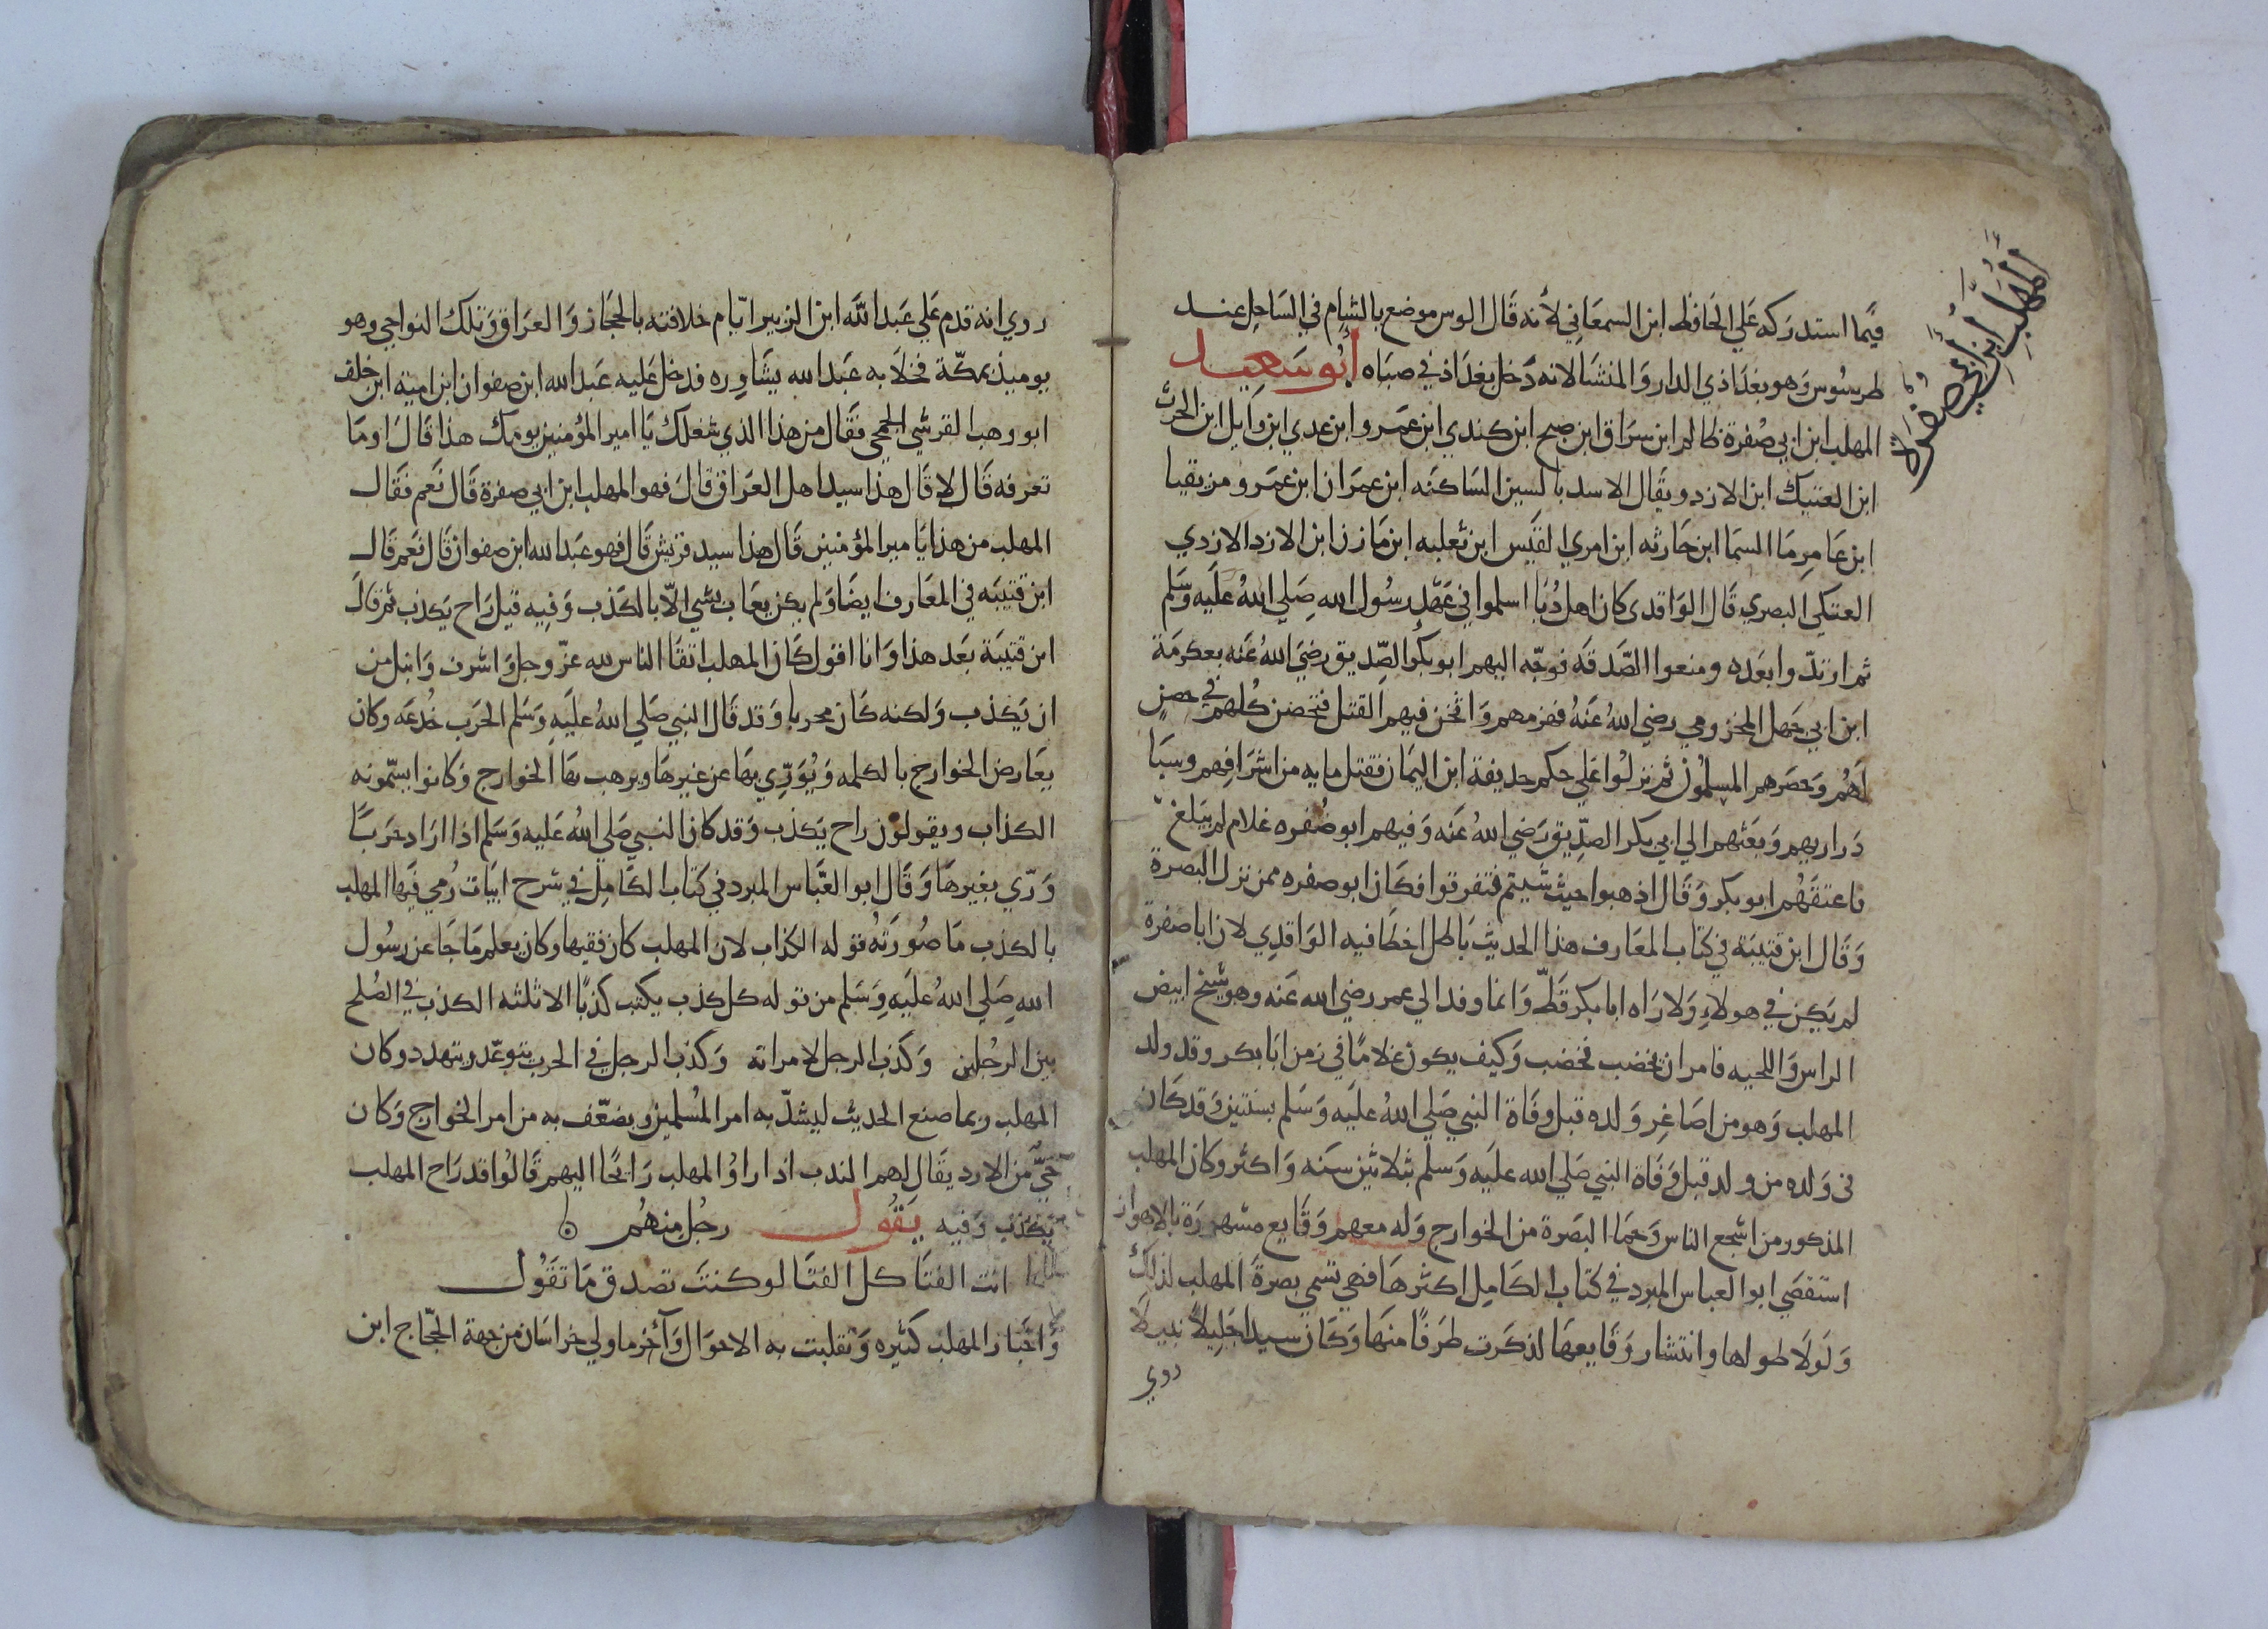 المهلب ابن ابي صفرة
فيما استدركه علي الحافظ ابن السمعاني لانه قال الوس موضع بالشام في الساحل عند
طرسوس وهو بغداذي الدار والمنشا لانه دخل بغداذ في صباه ابو سعيد
المهلب ابن ابي صفرة ظالم ابن سراق ابن صبح ابن كندي ابن عمرو ابن عدي ابن وايل ابن الحرث
ابن العتيك ابن الازد ويقال الاسد بالسين الساكنه ابن عمران ابن عمرو مزيقيا
ابن عامر ما السما ابن حارثه ابن امري القيس ابن ثعلبه ابن مازن ابن الازد الازدي
العتكي البصري قال الواقدى كان اهل دبا اسلموا في عهد رسول الله صلي الله عليه وسلم
ثم ارتدوا بعده ومنعوا الصدقه فوجه اليهم ابو بكر الصديق رضي الله عنه بعكرمة
ابن ابي جهل المخزومي رضي الله عنه فهزمهم واثخن فيهم القتل فتحصن كلهم في حصن
لهم وحصرهم المسلمون ثم نزلوا علي حكم حذيفة ابن اليمان فقتل مايه من اشرافهم وسبا
دراريهم وبعثهم الي ابي بكر الصديق رضي الله عنه وفيهم ابو صفره غلام لم يبلغ
فاعتقهم ابو بكر وقال اذهبوا حيث شيتم فتفرقوا فكان ابو صفره ممن نزل البصرة
وقال ابن قتيبة في كتاب المعارف هذا الحديث باطل اخطا فيه الواقدي لان ابا صفرة
لم يكن في هولاء ولا راه ابا بكر قط وانما وفد الي عمر رضي الله عنه وهو شيخ ابيض
الراس واللحيه فامر ان يخضب فخضب وكيف يكون غلاما في زمن ابا بكر وقد ولد
المهلب وهو من اصاغر ولده قبل وفاة النبي صلي الله عليه وسلم بسنتين وقد كان
في ولده من ولد قبل وفاة النبي صلي الله عليه وسلم بثلاثين سنه واكثر وكان المهلب
المذكور من اشجع الناس وحما البصرة من الخوارج وله معهم وقايع مشهورة بالاهواز
استقصي ابو العباس المبرد في كتاب الكامل اكثرها فهي تسمي بصرة المهلب لذلك
ولولا طولها وانتشار وقايعها لذكرت طرفا منها وكان سيدا جليلا نبيلا
روي
روي انه قدم علي عبد الله ابن الزبير ايام خلافته بالحجاز والعراق وتلك النواحي وهو
يوميذ بمكة فخلا به عبد الله يشاوره فدخل عليه عبد الله ابن صفوان ابن امية ابن خلف
ابو وهب القرشي الجمحي فقال من هذا الذي شغلك يا امير المؤمنين يومك هذا قال اوما
تعرفه قال لا قال هذا سيد اهل العراق قال فهو المهلب ابن ابي صفرة قال نعم فقال
المهلب من هذا يا مير المؤمنين قال هذا سيد قريش قال فهو عبد الله ابن صفوان قال نعم قال
ابن قتيبه في المعارف ايضا ولم يكن يعاب بشي الا بالكذب وفيه قيل راح يكذب ثم قال
ابن قتيبة بعد هذا وانا اقول كان المهلب اتقا الناس لله عز وجل واشرف وانبل من
ان يكذب ولكنه كان محربا وقد قال النبي صلي الله عليه وسلم الحرب خدعه وكان
يعارض الخوارج بالكلمه ويوري بها عن غيرها ويرهب بها الخوارج وكانوا يسمونه
الكذاب ويقولون راح يكذب وقد كان النبي صلي الله عليه وسلم اذا اراد حربا
وري بغيرها وقال ابو العباس المبرد في كتاب الكامل في شرح ابيات رمي فيها المهلب
بالكذب ما صورته قوله الكذاب لان المهلب كان فقيها وكان يعلم ما جا عن رسول
الله صلي الله عليه وسلم من قوله كل كذب يكتب كذبا الا ثلثه الكذب في الصلح
بين الرجلين وكذب الرجل لامراته وكذب الرجل في الحرب يتوعد ويتهدد وكان
المهلب ربما صنع الحديث ليشد به امر المسلمين ويضعف به من امر الخوارج وكان
حي من الازد يقال لهم الندب اذا راوا المهلب رايحا اليهم قالوا قد راح المهلب
يكذب وفيه يقول رجل منهم
انت الفتا كل الفتا لو كنت تصدق ما تقول
واخبار المهلب كثيره وتقلبت به الاحوال وآخر ما ولي خراسان من جهة الحجاج ابن